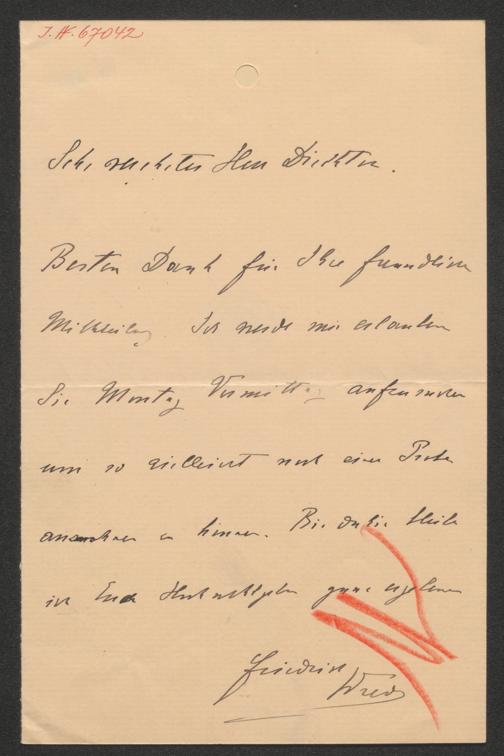 J.N. 67042
Sehr verehrter Herr Direktor.
Besten Dank für Ihre freundliche
Mitteilung. Ich werde mir erlauben
Sie Montag Vormittag aufzusuchen
um so vielleicht noch einer Probe
anwohnen zu können. Bis dahin bleibe
ich Euer Hochwohlgeboren ganz ergebener
Friedrich